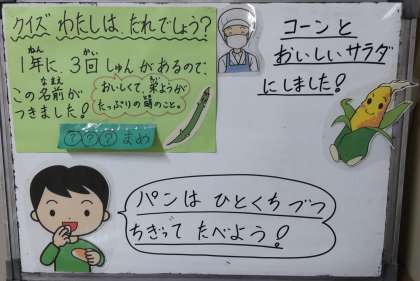 クイズ わたしは、たれでしょう?
1年に、3回 しゅんがあるので、
この名前が
つきました!
おいしくて、栄ようが
たっぷりの時のこと。
???まめ
コーンと
おいしいサラダ
にしました!
パンは ひとくちづつ
ちぎって たべよう!